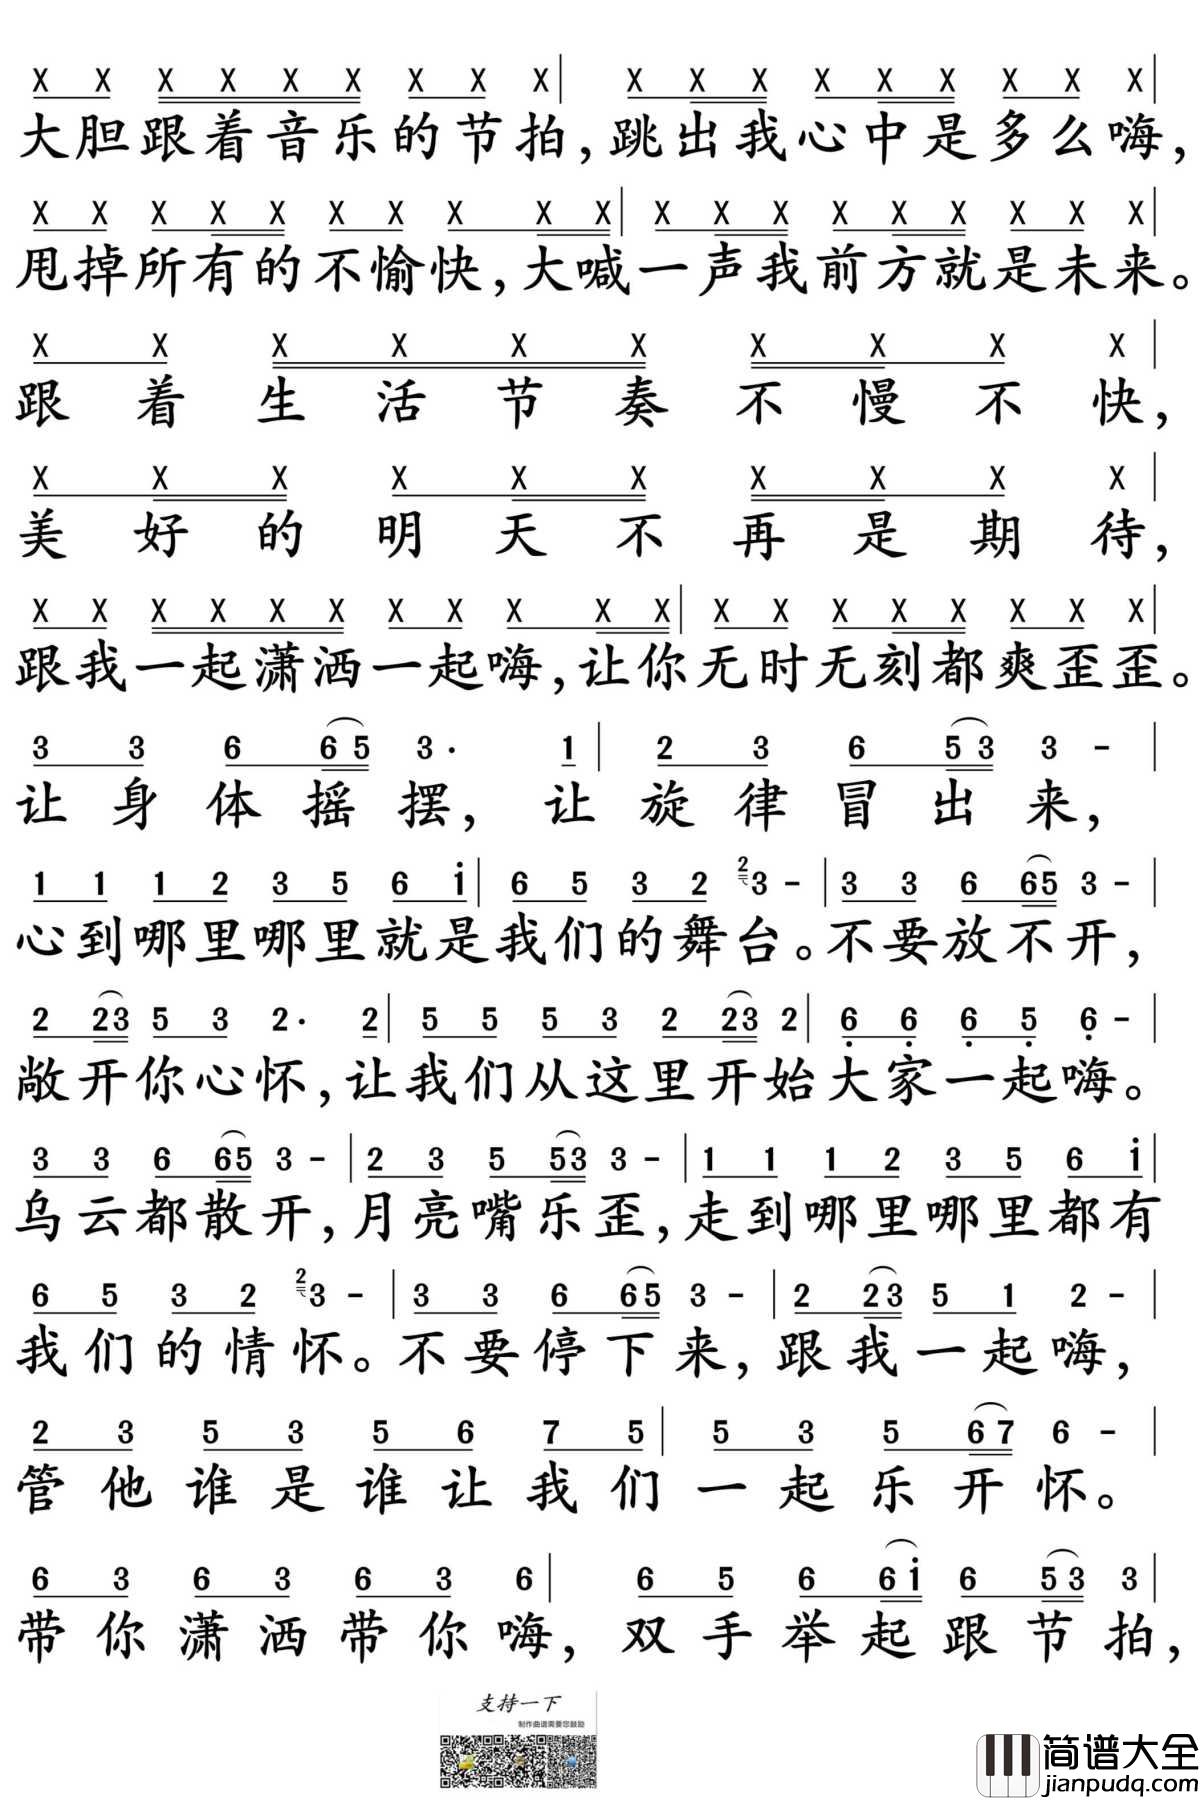 X X X X X X X X X | X X X X X X X X X |
大胆跟着音乐的节拍,跳出我心中是多么嗨,
X X X X X X X X X X | X X X X X X X X X |
甩掉所有的不愉快,大喊一声我前方就是未来。
X X X X X X X X X X |
跟着生活节奏不慢不快,
X X X X X X X X X X |
美好的明天不再是期待,
X X X X X X X X X X X | X X X X X X X X |
跟我一起潇洒一起嗨,让你无时无刻都爽歪歪。
3 3 6 6 5 3· 1 | 2 3 6 5 3 3 - |
让身体摇摆,让旋律冒出来,
1 1 1 2 3 5 6 i | 6 5 3 2 2 3 - | 3 3 6 6 5 3 - |
心到哪里哪里就是我们的舞台。不要放不开,
2 2 3 5 3 2· 2 | 5 5 5 3 2 2 3 2 | 6 6 6 5 6 - |
敞开你心怀,让我们从这里开始大家一起嗨。
3 3 6 6 5 3 - | 2 3 5 5 3 3 - | 1 1 1 2 3 5 6 i |
乌云都散开,月亮嘴乐歪,走到哪里哪里都有
6 5 3 2 2 3 - | 3 3 6 6 5 3 - | 2 2 3 5 1 2 - |
我们的情怀。不要停下来,跟我一起嗨,
2 3 5 3 5 6 7 5 | 5 3 5 6 7 6 - |
管他谁是谁让我们一起乐开怀。
6 3 6 3 6 3 6 | 6 5 6 6 i 6 5 3 3 |
带你潇洒带你嗨,双手举起跟节拍,
支持一下
制作曲谱需要您鼓励
简谱大全
jianpudq.com